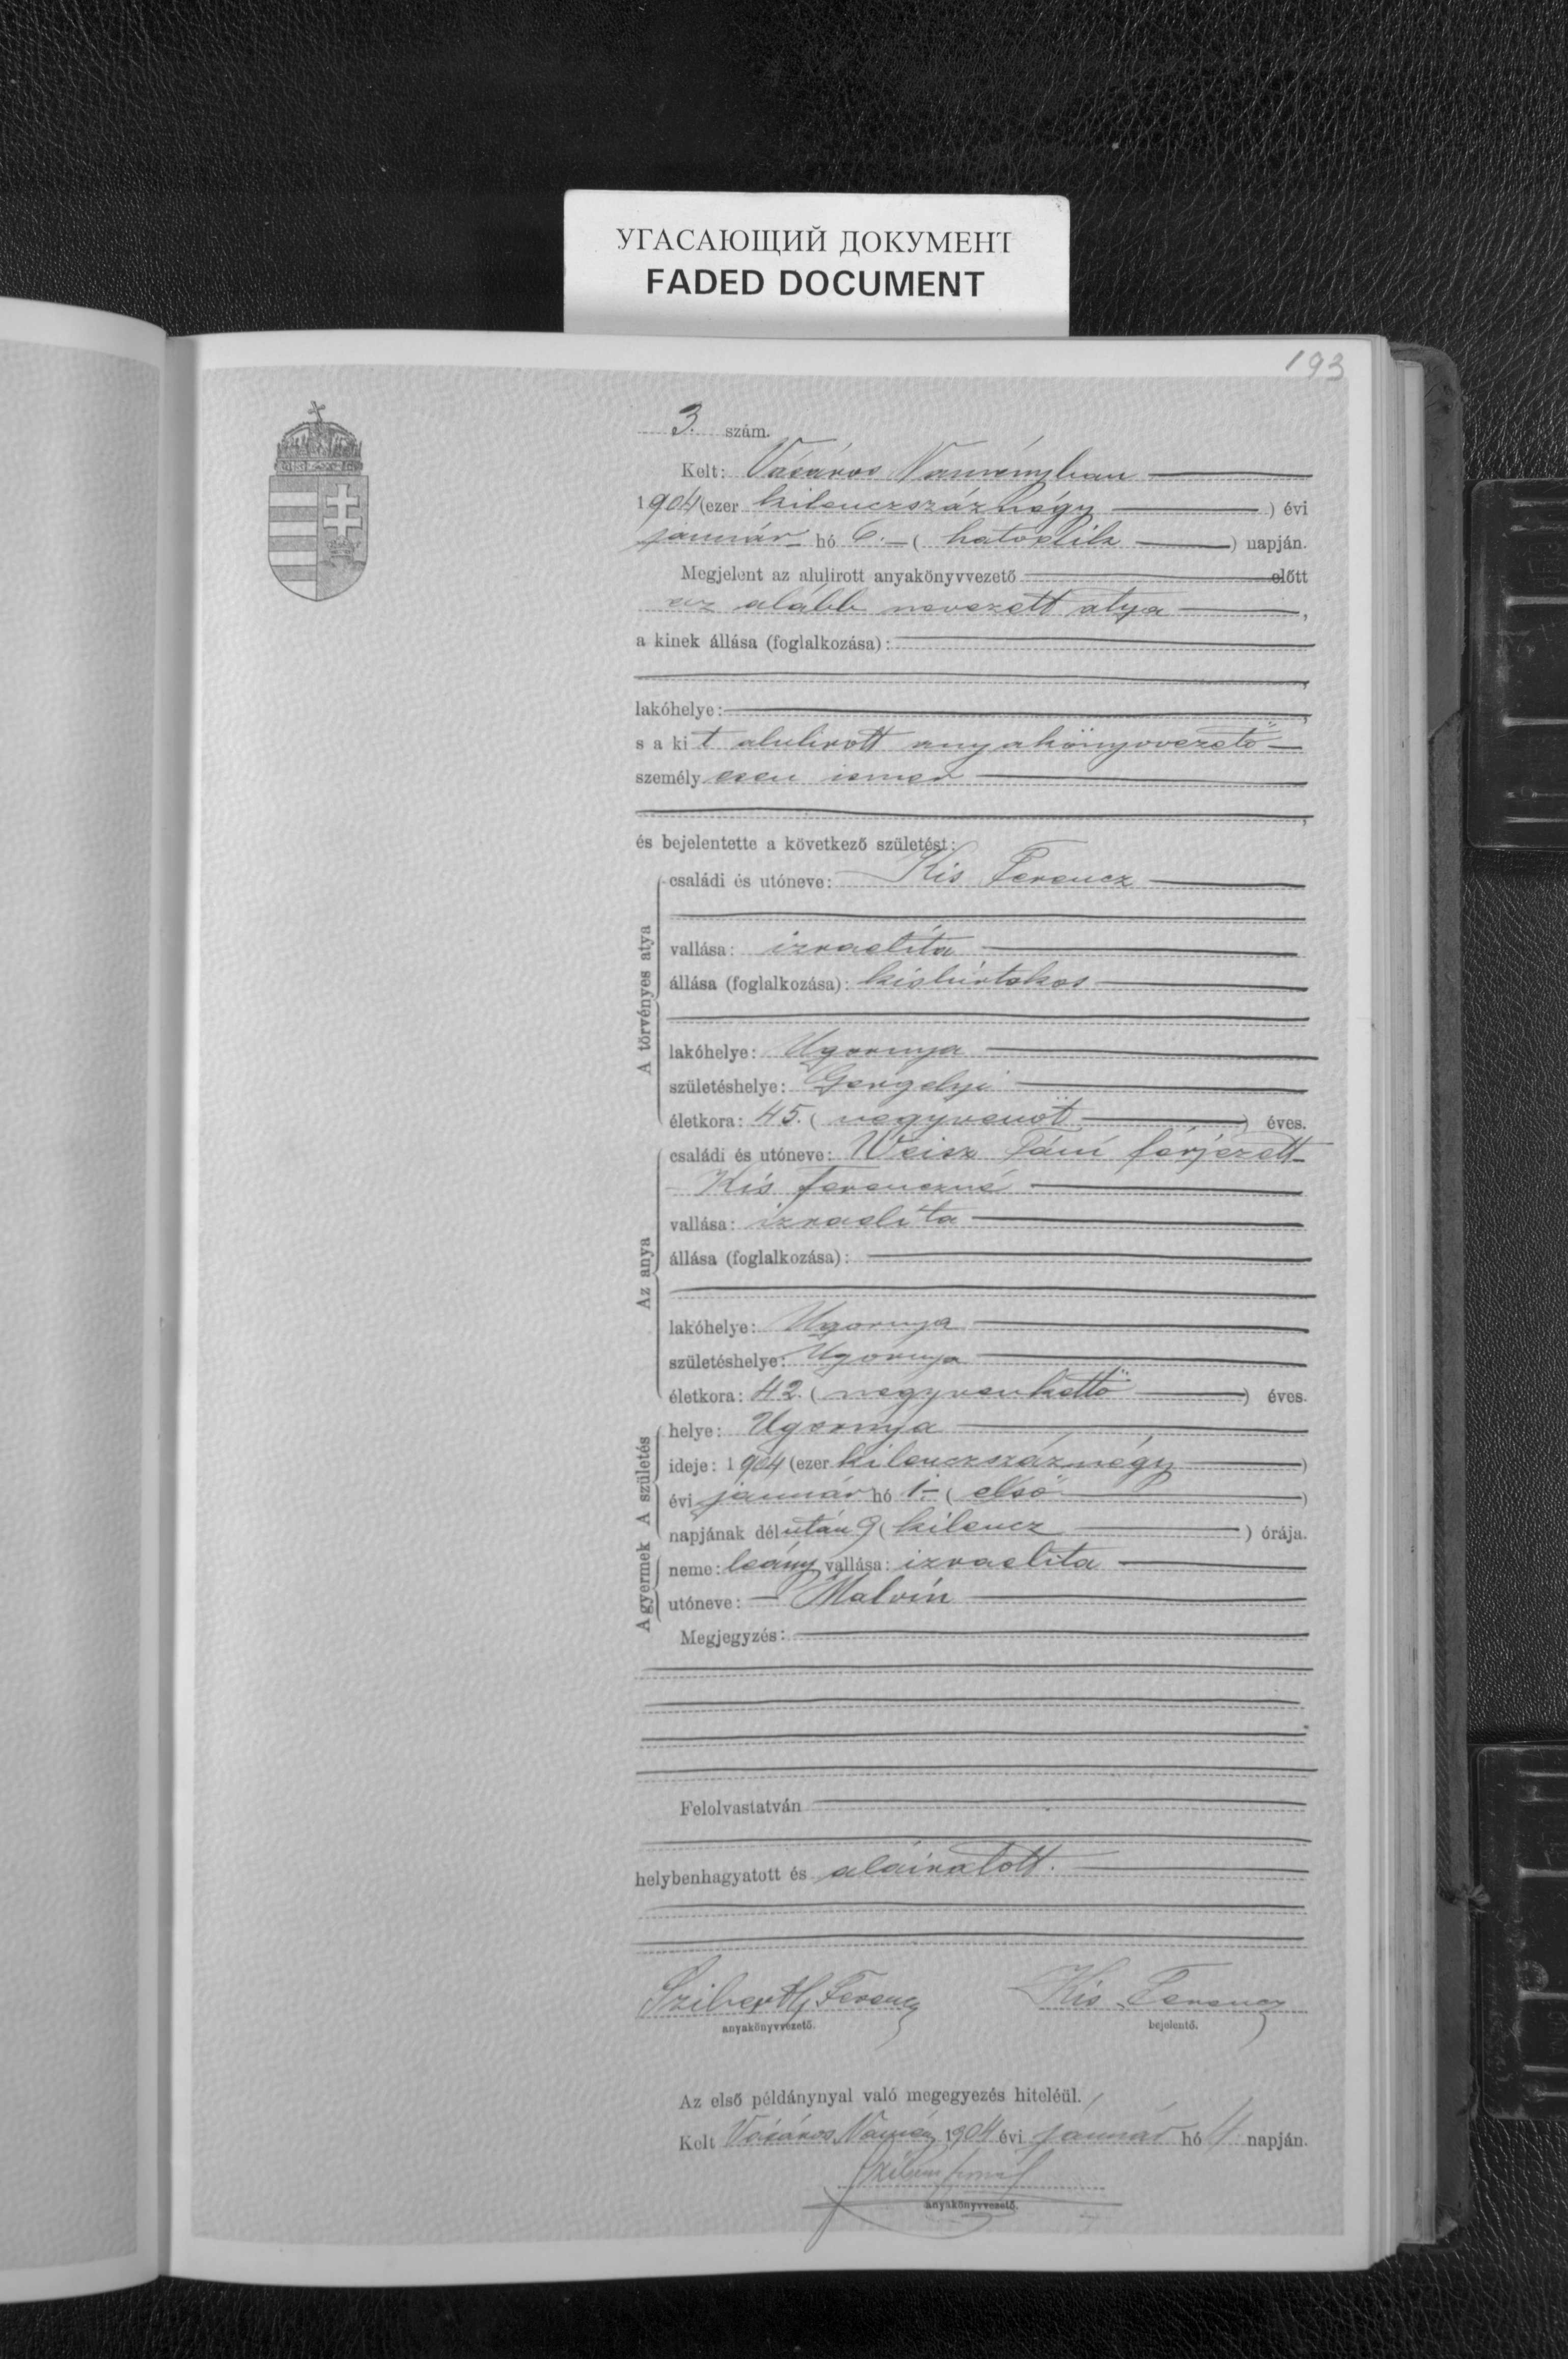 УГАСАЮЩИЙ ДОКУМЕНТ
FADED DOCUMENT
193
3. szám.
Kelt: Vásáros Naményban
1904 (ezer kilenczszáznégy) évi
január hó 6.- (hatodik) napján.
Megjelent az alulirott anyakönyvvezető előtt
az alább nevezett atya,
a kinek állása (foglalkozása):
lakóhelye:
s a kit alulirott anyakönyvvezető
személyesen ismer
és bejelentette a következő születést:
A törvényes atya
családi és utóneve: Kis Ferencz
vallása: izraelita
állása (foglalkozása): kisbirtokos
lakóhelye: Ugornya
születéshelye: Gergelyi
életkora: 45. (negyvenöt) éves.
Az anya
családi és utóneve: Weisz Fáni férjezett
Kis Ferenczné
vallása: izraelita
állása (foglalkozása):
lakóhelye: Ugornya
születéshelye: Ugornya
életkora: 42. (negyvenkettő) éves.
A születés
helye: Ugornya
ideje: 1904 (ezer kilenczszáznégy)
évi január hó 1.- (első)
napjának délután 9 (kilencz) órája.
A gyermek
neme: leány vallása: izraelita
utóneve: Malvin
Megjegyzés:
Felolvastatván
helybenhagyatott és aláiratott.
Ferencz Kis Ferencz
anyakönyvvezető. bejelentő.
Az első példánynyal való megegyezés hiteléül.
Kelt Vásáros Namény 1904 évi január hó napján.
anyakönyvvezető.